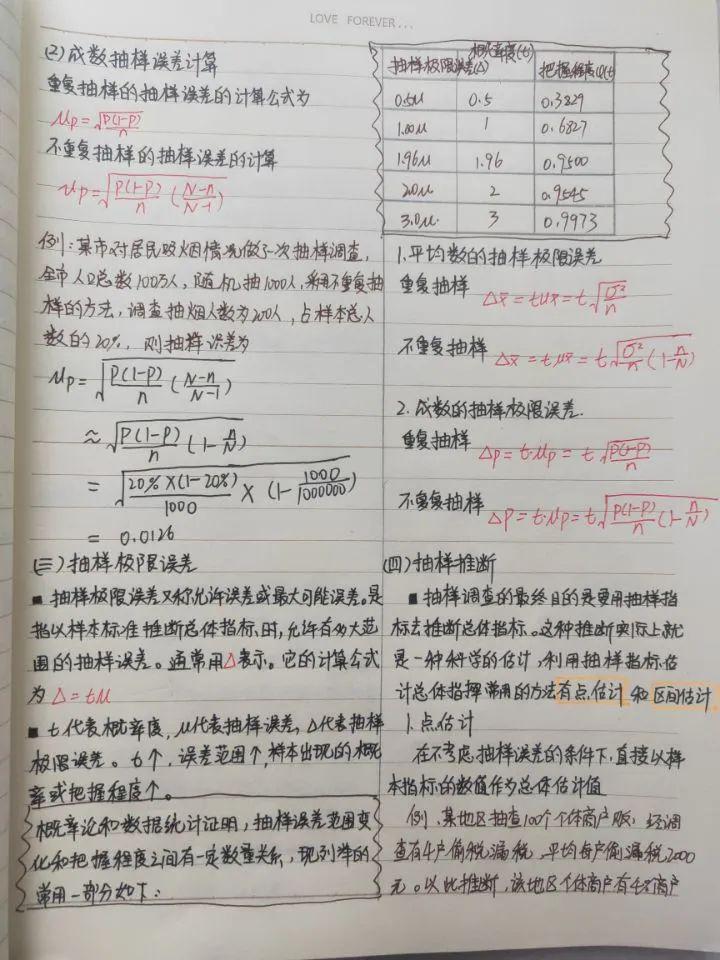 LOVE FOREVER...
(2) 成数抽样误差计算
重复抽样的抽样误差的计算公式为
μp=√P(1-P)/n
不重复抽样的抽样误差的计算
μp=√P(1-P)/n (N-n/N-1)
例:某市对居民吸烟情况做了一次抽样调查,
全市人口总数100万人,随机抽1000人,采用不重复抽
样的方法,调查抽烟人数为200人,占样本总人
数的20%,则抽样误差为
μp=√P(1-P)/n (N-n/N-1)
≈√P(1-P)/n (1-n/N)
=√20%×(1-20%)/1000 × (1-1000/1000000)
= 0.0126
(三)抽样极限误差
■ 抽样极限误差又称允许误差或最大可能误差。是
指以样本标准推断总体指标时,允许有多大范
围的抽样误差。通常用△表示。它的计算公式
为△=tμ
■ t代表概率度,μ代表抽样误差,△代表抽样
极限误差。t个,误差范围个,样本出现的概
率或把握程度个。
概率论和数据统计证明,抽样误差范围变
化和把握程度之间有一定数量关系,现列举的
常用一部分如下:
抽样极限误差(△) 概率度(t) 把握程度Φ(t)
0.5μ 0.5 0.3829
1.00μ 1 0.6827
1.96μ 1.96 0.9500
2.0μ 2 0.9545
3.0μ 3 0.9973
1.平均数的抽样极限误差
重复抽样 △x̄=tμx̄=t√σ²/n
不重复抽样 △x̄=tμx̄=t√σ²/n(1-n/N)
2.成数的抽样极限误差.
重复抽样 △p=t·μp=t√P(1-P)/n
不重复抽样 △P=t·μp=t√P(1-P)/n(1-n/N)
(四)抽样推断
■ 抽样调查的最终目的是要用抽样指
标去推断总体指标。这种推断实际上就
是一种科学的估计,利用抽样指标估
计总体指标常用的方法有点估计和区间估计
1.点估计
在不考虑抽样误差的条件下,直接以样
本指标的数值作为总体估计值
例,某地区抽查100个个体商户,经调
查有4户偷税漏税,平均每户偷漏税2000
元。以此推断,该地区个体商户有4%商户